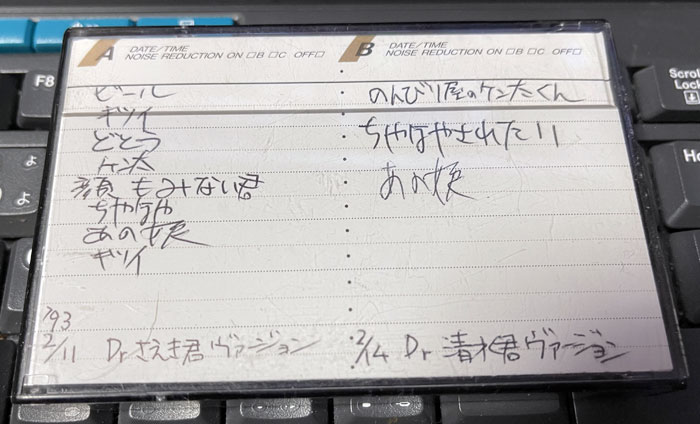 A DATE/TIME
NOISE REDUCTION ON □B □C OFF□
ビール
ギツイ
どとう
ケン太
顔もみない君
ちやほや
あの娘
ギツイ
'93
2/11 Dr さえき君ヴァージョン
B DATE/TIME
NOISE REDUCTION ON □B □C OFF□
のんびり屋のケン太くん
ちやほやされたい
あの娘
2/14 Dr 清水君ヴァージョン
F8
Scroll
Lock